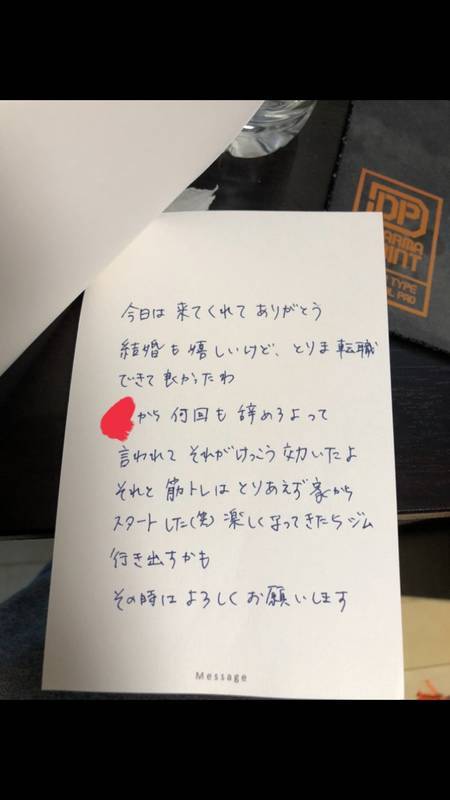 今日は 来てくれて ありがとう
結婚も嬉しいけど、とりま 転職
できて 良かったわ
から 何回も 辞めろよって
言われて それがけっこう 効いたよ
それと 筋トレは とりあえず 家から
スタートした(笑) 楽しくなってきたら ジム
行き出すかも
その時は よろしく お願いします
Message
DP
INT
TYPE
PRO